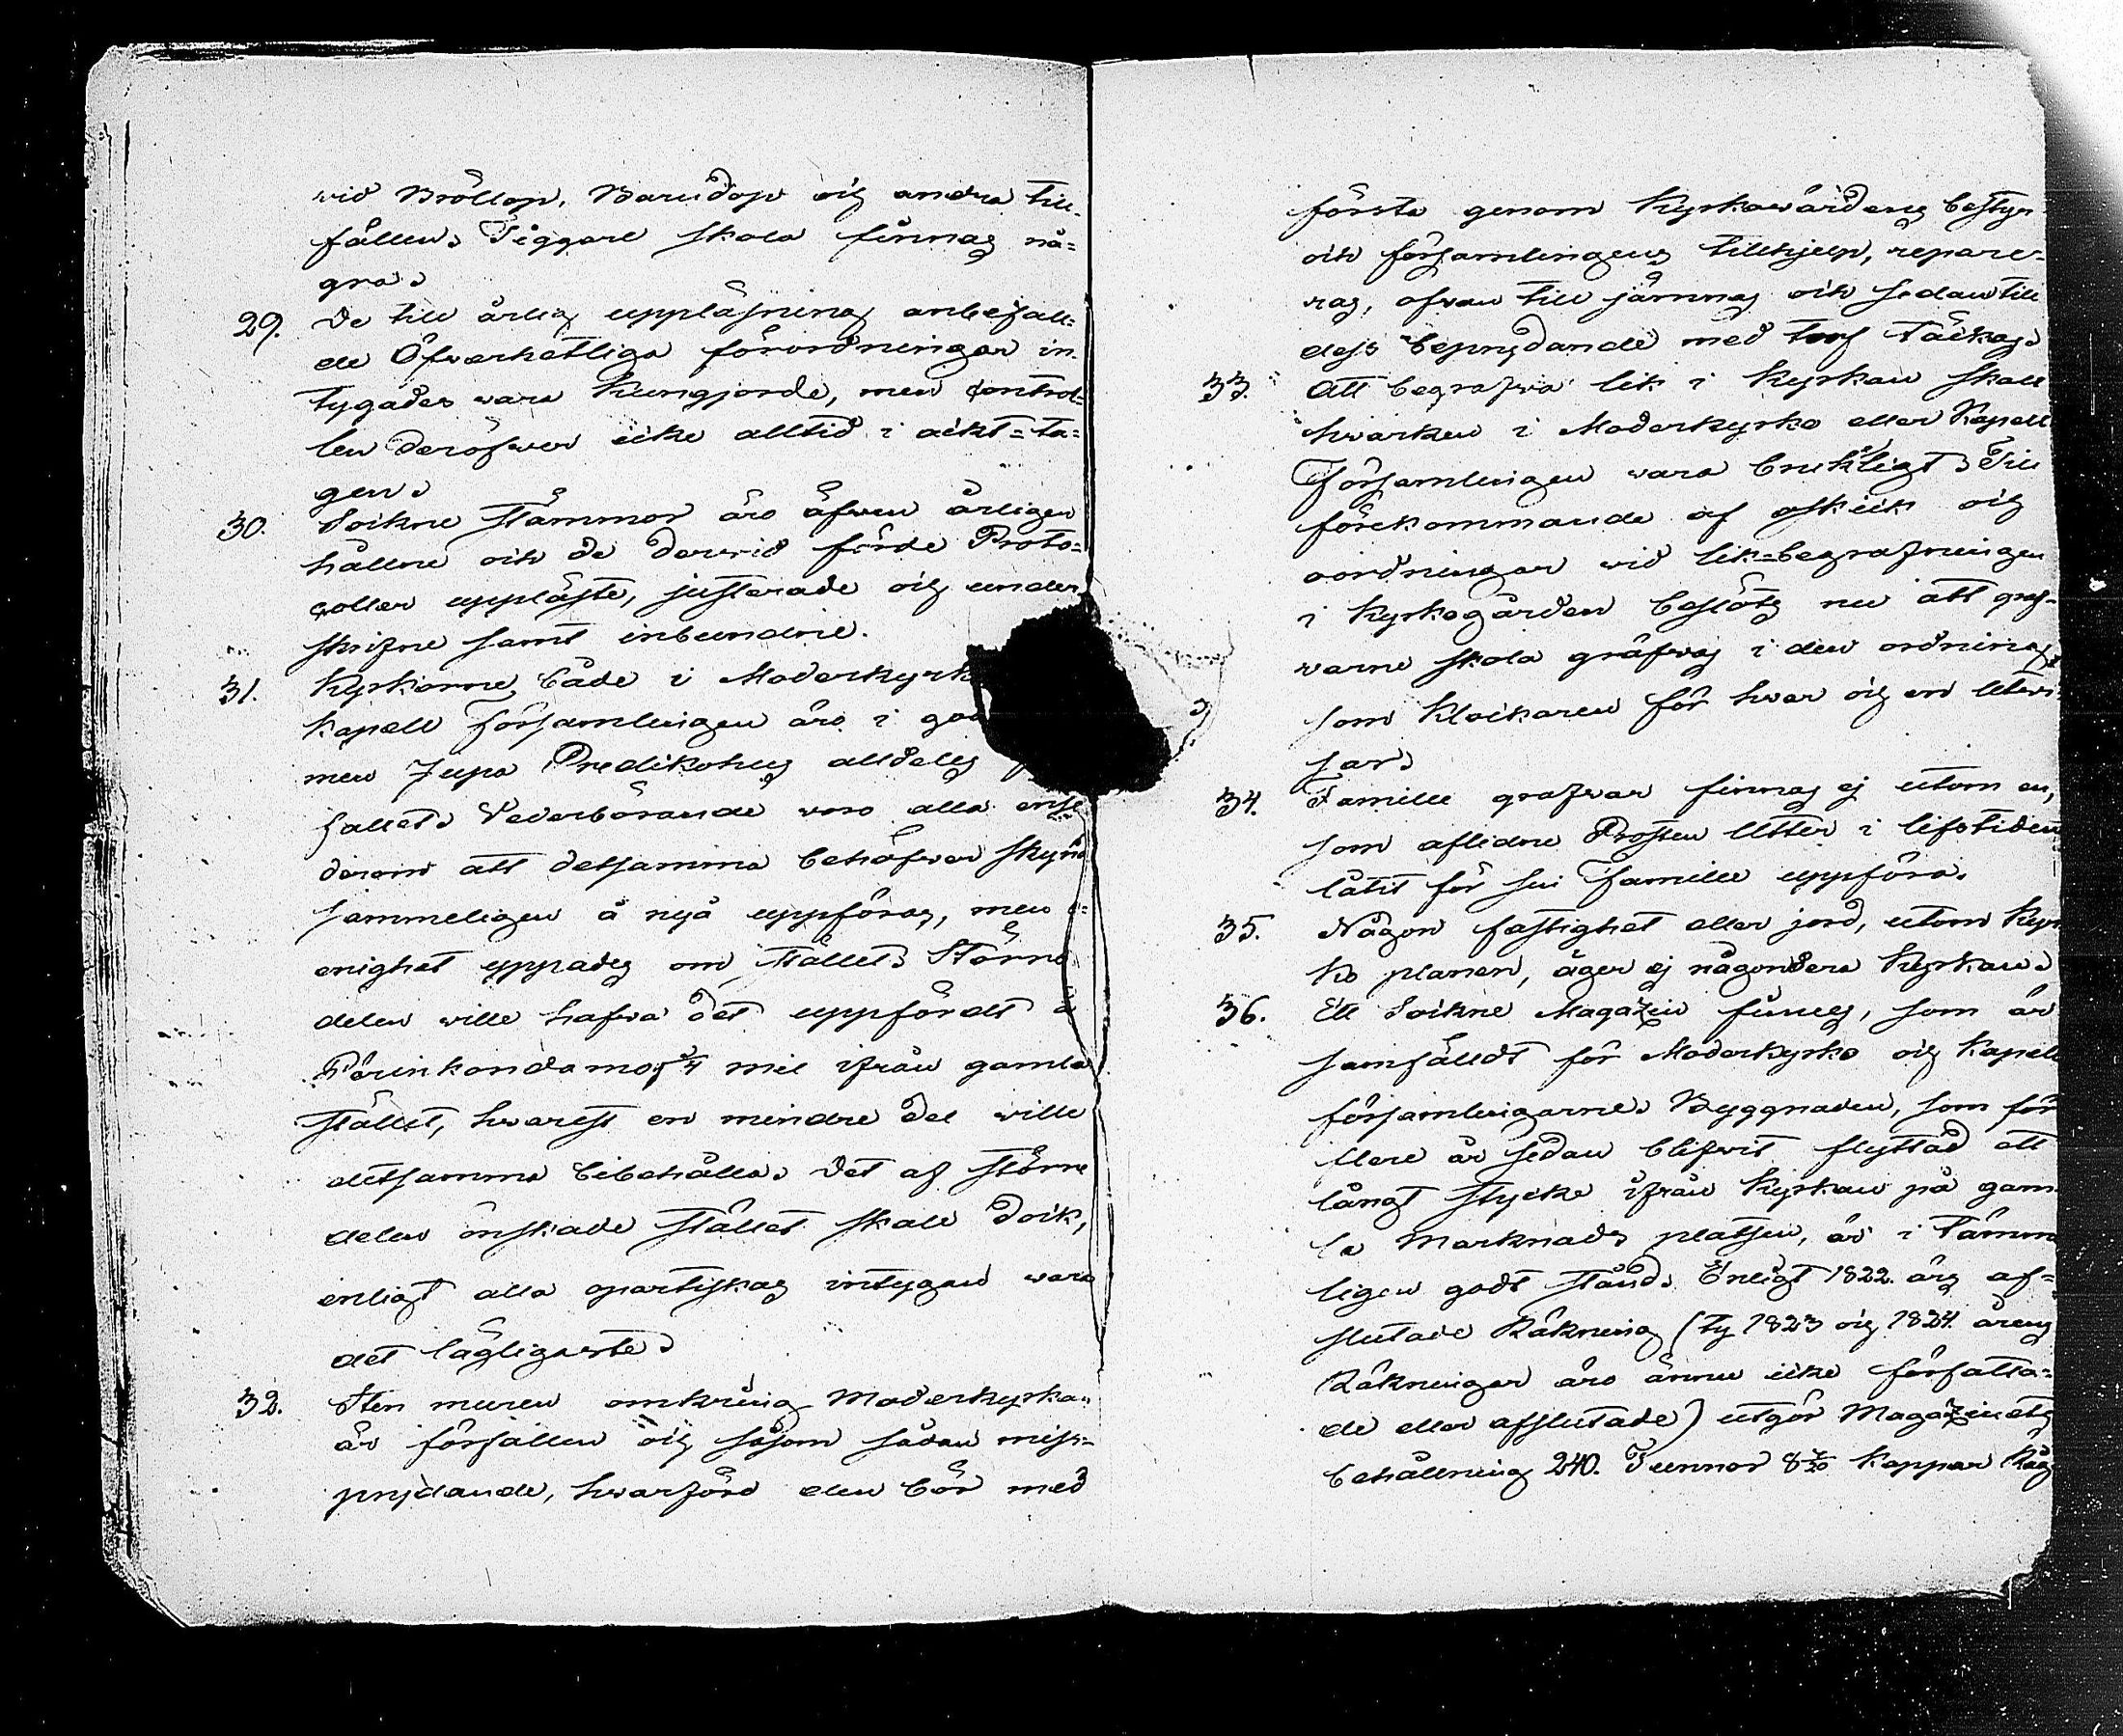 wid Bröllop, Barndop och andra till-
fällen. Tiggare skola finnas nå=
gra.
29. De till årlig uppläsning anbefall=
de Öfverhetliga förordningar in-
tygades vara kungjorde, men control=
len deröfver icke alltid i ackt=ta=
gen.
30. Sockne stämmor äro äfven årligen
hållne och de dervid förde Proto=
coller uppläste, justerade och under-
skrifne samt inbundne.
31. Kyrkorne både i Moderkyrk
Kapell församlingen äro i god
men Jupa Predikohus alldeles
fallet. Vederbörande voro alla ense
derom att detsamma behöfver skynd
sammeligen å nyå uppföras, men o=
enighet yppades om stället. Större
delen wille hafva det uppfördt å
Pörinkondamo, 3/4 mil ifrån gamla
stället, hvarest en mindre del wille
detsamma bibehålla. Det af större
delen önskade stället skall dock,
enligt alla opartiskas intygan vara
det lägligaste.
32. Sten muren omkring Moderkyrkan
är förfallen och såsom sådan miss=
prydande, hvarföre den bör med
första genom Kyrkovärdens bestyr
och församlingens tillhjelp, repare=
ras, ofvan till jämnas och sedan till
dess beprydande med torf täckas.
33. Att begrafva lik i Kyrkan skall
hvarken i Moderkyrko eller Kapell
Församlingen vara brukligt. Till
förekommande af oskick och
oordningar vid lik=begrafningen
i Kyrkogården beslöts nu att graf-
varne skola gräfvas i den ordning,
som Klockaren för hvar och en utvi-
sar.
34. Famille grafvar finnas ej utom en,
som aflidne Prosten Utter i lifstiden
låtit för sin Famille uppföra.
35. Någon fastighet eller jord, utom Kyr
ko planen, äger ej någondera Kyrkan.
36. Ett Sockne Magazin finnes, som är
samfäldt för Moderkyrko och Kapell
församlingarne. Byggnaden, som för
flere år sedan blifvit flyttad ett
långt stycke ifrån Kyrkan på gam
la Marknads platsen, är i tämme
ligen godt stånd. Enligt 1822. års af=
slutade Räkning (ty 1823 och 1824. årens
Räkningar äro ännu icke författa=
de eller afslutade) utgör Magazinets
behållning 240. Tunnor 8 7/20 kappar Råg